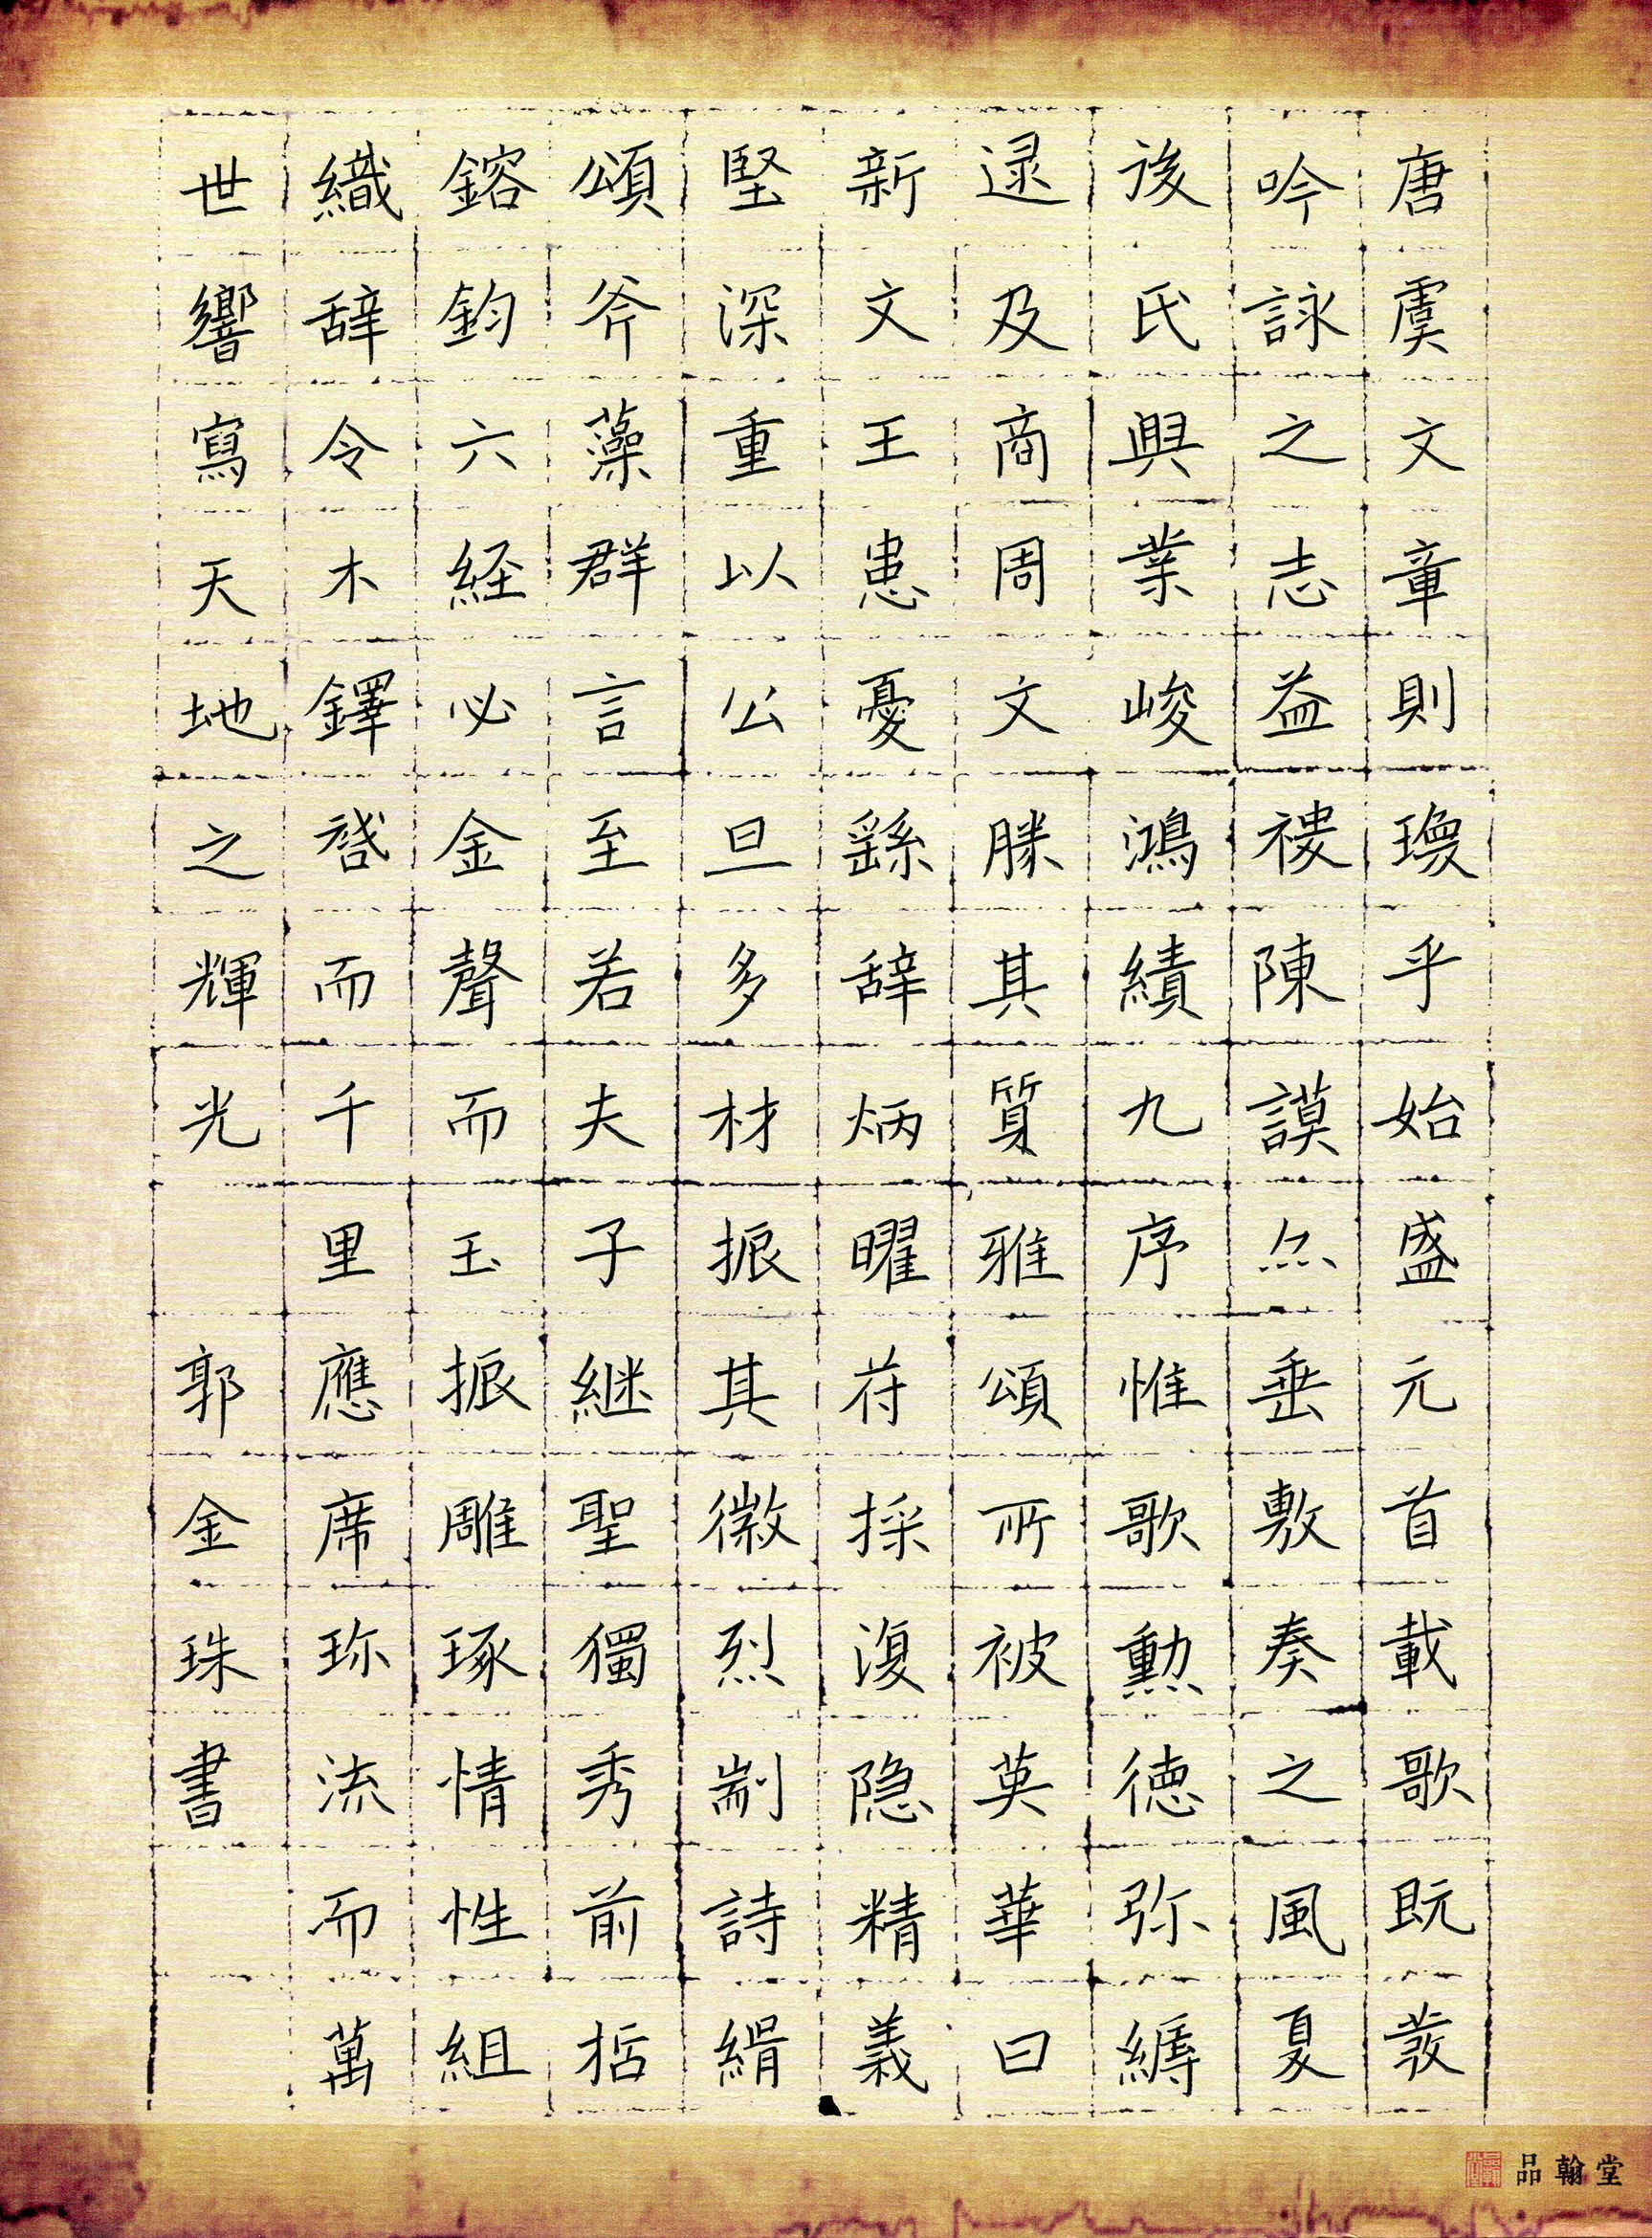 唐虞文章則瓊乎始盛元首載歌既發
吟詠之志益禝陳謨亦垂敷奏之風夏
後氏興業峻鴻績九序惟歌勲德弥縟
逯及商周文勝其質雅頌所被英華曰
新文王患憂繇辞炳曜苻採復隐精義
堅深重以公旦多材振其徽烈剬詩緝
頌斧藻群言至若夫子継聖獨秀前括
鎔鈞六経必金聲而玉振雕琢情性組
織辞令木鐸啓而千里應席珎流而萬
世響寫天地之輝光 郭金珠書
品翰堂